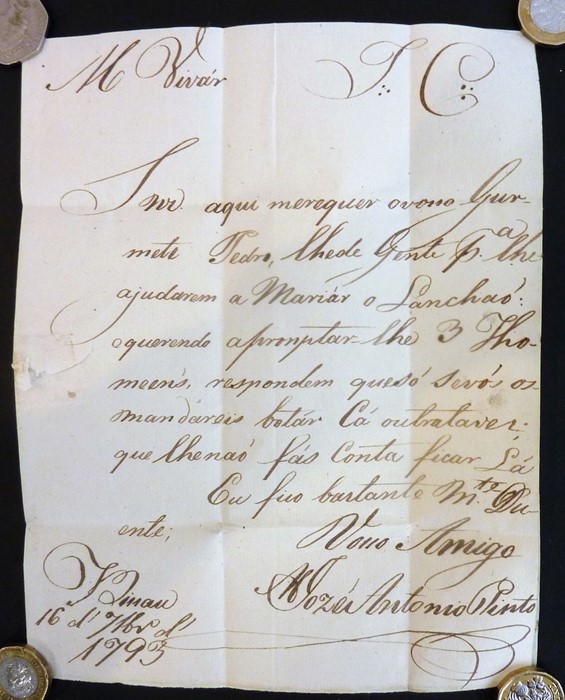 M Vivár J. C.
Snr. aqui merequer ovono Gur-
mete Pedro, lhede Gente p.a lhe
ajudarem a Mariár o Lanchaõ.
oquerendo apronptar-lhe 3 Tho-
meens, respondem quesó sevós os
mandáreis botár Cá outratavez.
que lhenaó fás Conta ficar Lá
Eu fico bastante M.te Du-
ente;
Vono Amigo
Jozéi António Pinto
Binau
16 d' 7br d'
1793